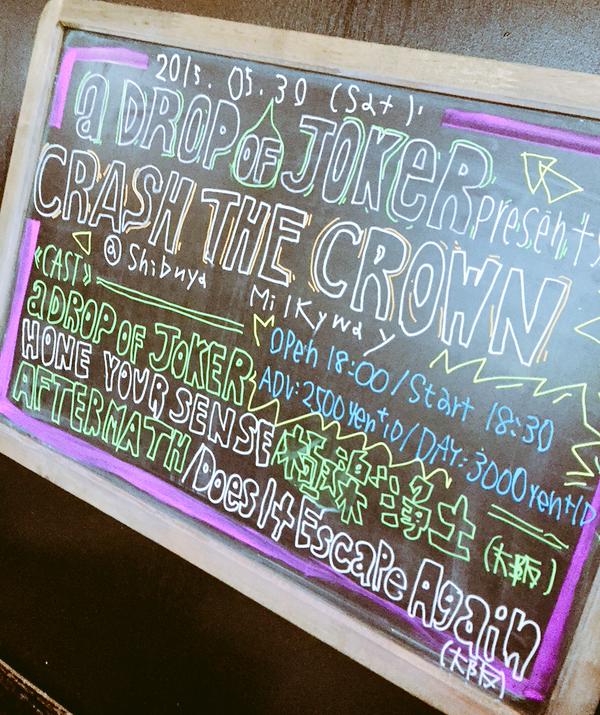 2015. 05. 30 (Sat).
a DROP OF JOKeR presents
CRASH THE CROWN
@ Shibuya MilKyway
《CAST》
Open 18:00/Start 18:30
ADV:2500yen+D/DAY:3000yen+1D
aDROP OF JOKER
HONE YOUR SENSE
AFTERMATH/Does It Escape Again
(大阪)
浄土
(大阪)